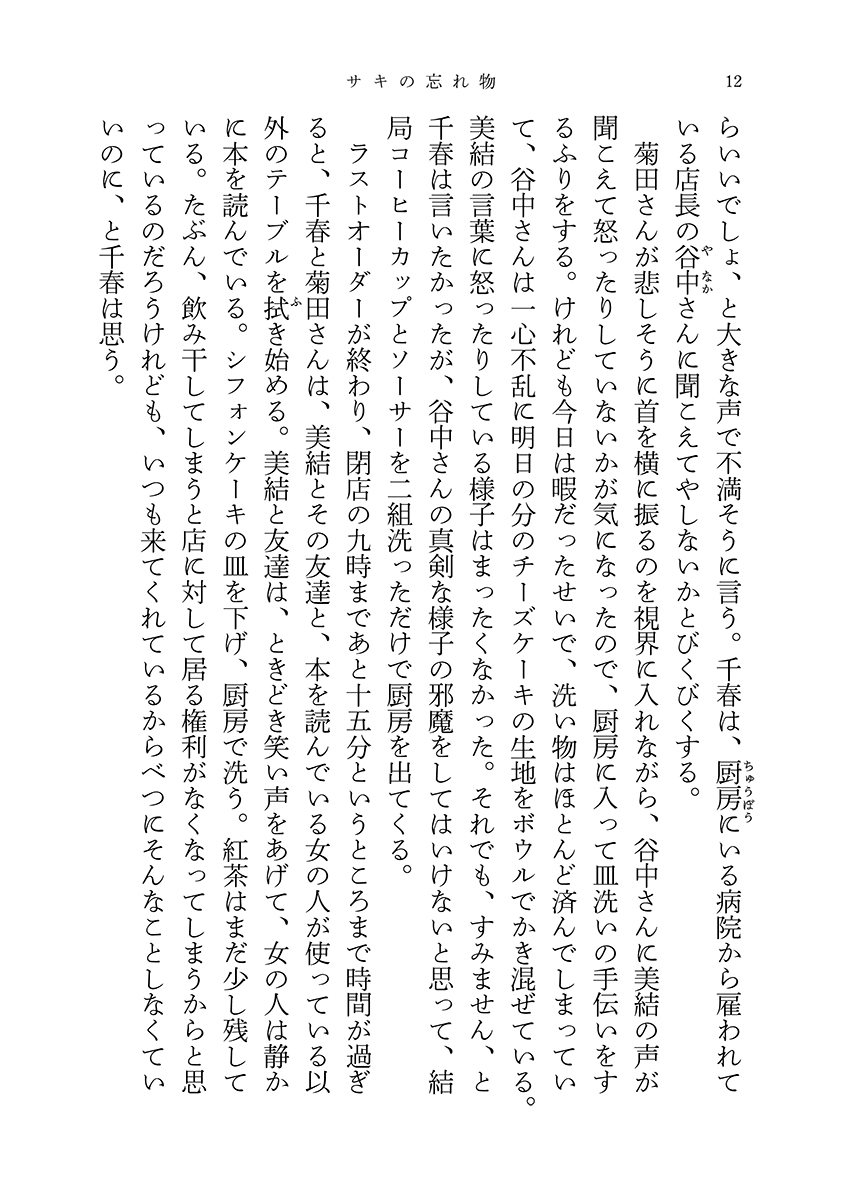 サキの忘れ物
12
らいいでしょ、と大きな声で不満そうに言う。千春は、厨房にいる病院から雇われて
ちゅうぼう
いる店長の谷中さんに聞こえてやしないかとびくびくする。
やなか
菊田さんが悲しそうに首を横に振るのを視界に入れながら、谷中さんに美結の声が
聞こえて怒ったりしていないかが気になったので、厨房に入って皿洗いの手伝いをす
るふりをする。けれども今日は暇だったせいで、洗い物はほとんど済んでしまってい
て、谷中さんは一心不乱に明日の分のチーズケーキの生地をボウルでかき混ぜている。
美結の言葉に怒ったりしている様子はまったくなかった。それでも、すみません、と
千春は言いたかったが、谷中さんの真剣な様子の邪魔をしてはいけないと思って、結
局コーヒーカップとソーサーを二組洗っただけで厨房を出てくる。
ラストオーダーが終わり、閉店の九時まであと十五分というところまで時間が過ぎ
ると、千春と菊田さんは、美結とその友達と、本を読んでいる女の人が使っている以
外のテーブルを拭き始める。美結と友達は、ときどき笑い声をあげて、女の人は静か
ふ
に本を読んでいる。シフォンケーキの皿を下げ、厨房で洗う。紅茶はまだ少し残して
いる。たぶん、飲み干してしまうと店に対して居る権利がなくなってしまうからと思
っているのだろうけれども、いつも来てくれているからべつにそんなことしなくてい
いのに、と千春は思う。